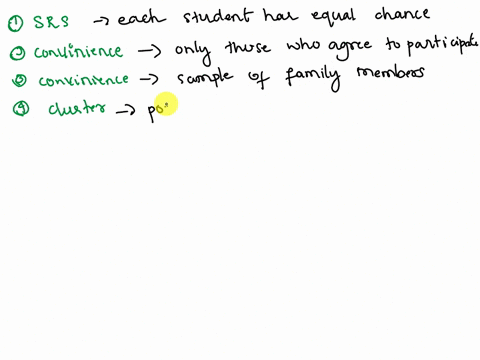 ① SRS → each student has equal chance
② convinience → only those who agree to participate
③ convinience → sample of family members
④ cluster → po